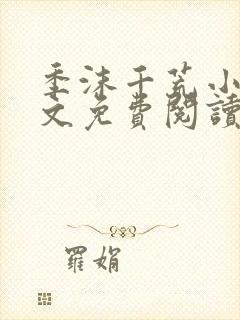 季沫千荒小
文免費閱讀
羅娟